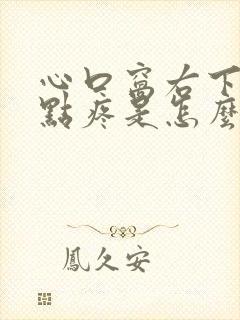 心口窩右下
點疼是怎麼
鳳久安